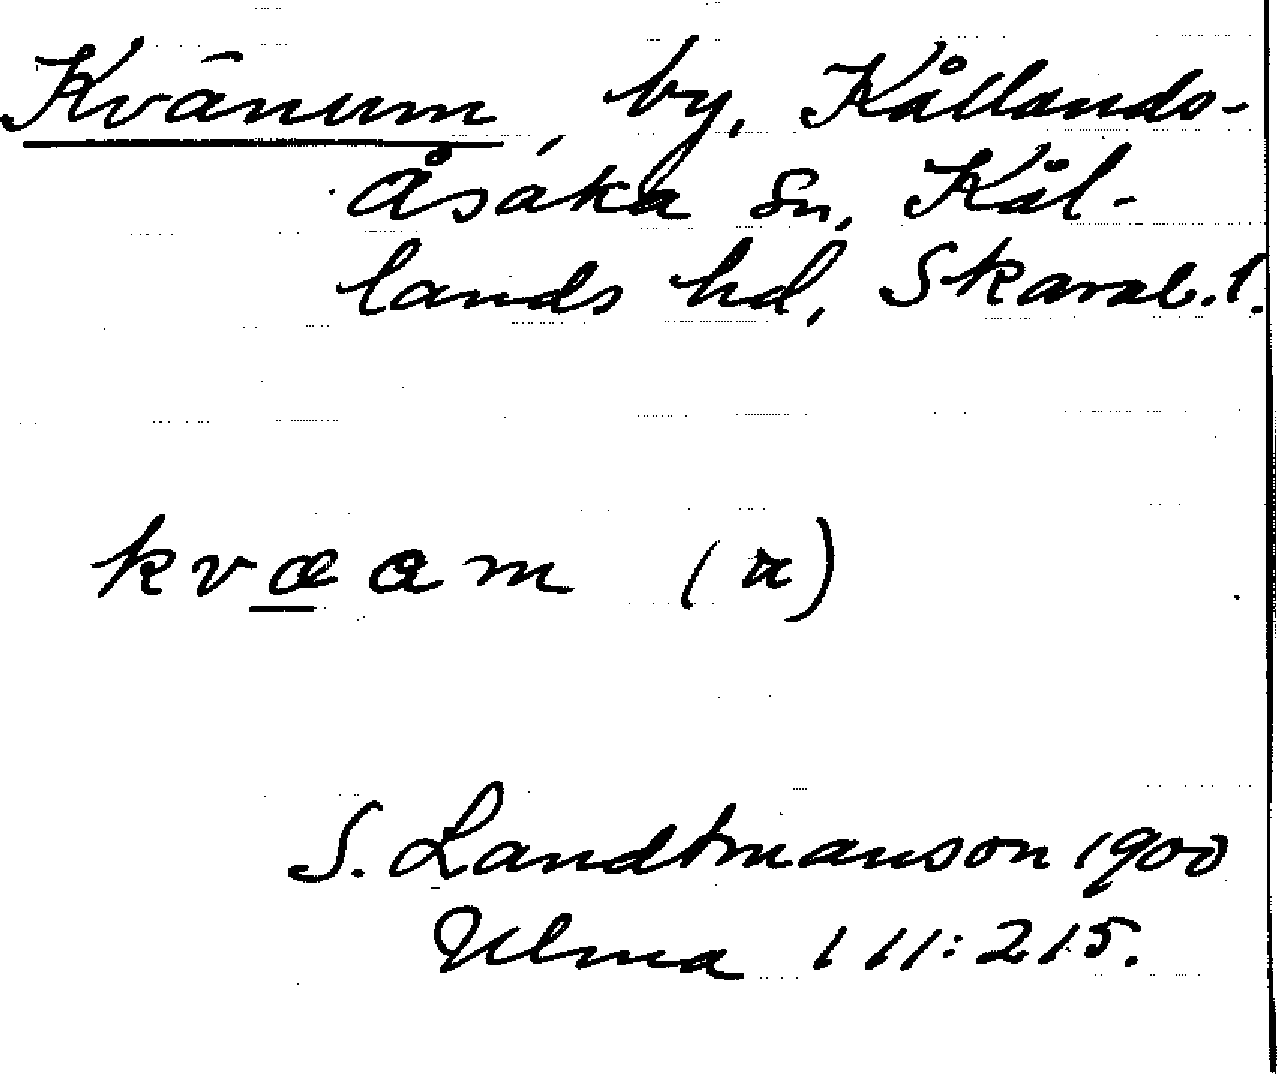 Kvänum, by, Kållands-
Åsaka sn, Kål-
lands hd, Skarab. l.
kvæam (æ)
S. Landtmanson 1900
Ulma 111:215.